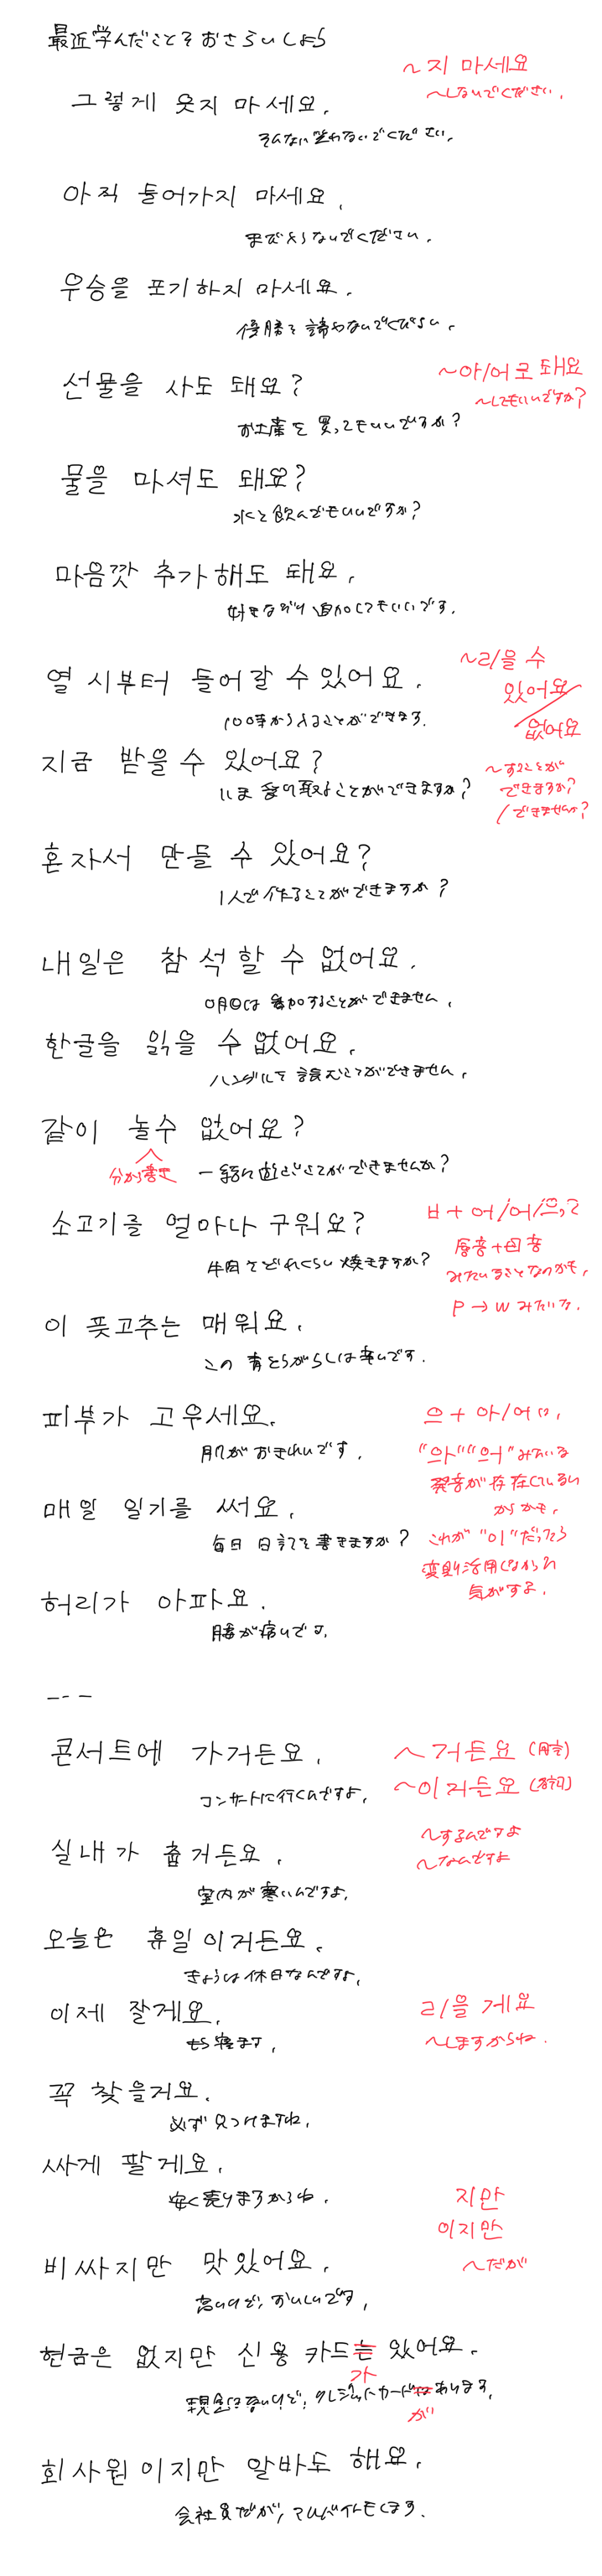 最近学んだことをおさらいしよう
~지 마세요
~しないでください.
그렇게 웃지 마세요.
そんなに笑わないでください.
아직 들어가지 마세요.
まだ入らないでください.
우승을 포기하지 마세요.
優勝を諦めないでください.
선물을 사도 돼요?
~아/어도 돼요
~してもいいですか?
お土産を買ってもいいですか?
물을 마셔도 돼요?
水を飲んでもいいですか?
마음껏 추가해도 돼요.
好きなだけ追加してもいいです.
열 시부터 들어갈 수 있어요.
~ㄹ/을 수
있어요/
없어요
10時から入ることができます.
지금 받을 수 있어요?
いま受け取ることができますか?
~することが
できますか?
/できませんか?
혼자서 만들 수 있어요?
1人で作ることができますか?
내일은 참석할 수 없어요.
明日は参加することができません.
한글을 읽을 수 없어요.
ハングルを読むことができません.
같이 놀수 없어요?
分かち書き
一緒に遊ぶことができませんか?
소고기를 얼마나 구워요?
牛肉をどれくらい焼きますか?
ㅂ+어/아/으,,
母音
みたいなことなのかも.
P→W みたいな.
이 풋고추는 매워요.
この青とうがらしは辛いです.
피부가 고우세요.
肌がおきれいです.
으+아/어 は,
"으아""으어"みたいな
発音が存在していない
からかも.
これが"이"だったら
変則活用じゃなかった
気がする.
매일 일기를 써요.
毎日日記を書きますか?
허리가 아파요.
腰が痛いです.
---
콘서트에 가거든요.
コンサートに行くんですよ.
~거든요 (用言)
~이거든요 (名詞)
~するんですよ
~なんですよ
실내가 춥거든요.
室内が寒いんですよ.
오늘은 휴일이거든요.
きょうは休日なんですよ.
이제 잘게요.
もう寝ます.
ㄹ/을 게요
~しますからね.
꼭 찾을거요.
必ず見つけますね.
싸게 팔게요.
安く売りますからね.
지만
이지만
~だが
비싸지만 맛있어요.
高いけど,おいしいです.
현금은 없지만 신용 카드는 있어요.
가
現金はないけど,クレジットカードはあります.
が
회사원이지만 알바도 해요.
会社員だが,アルバイトもします.